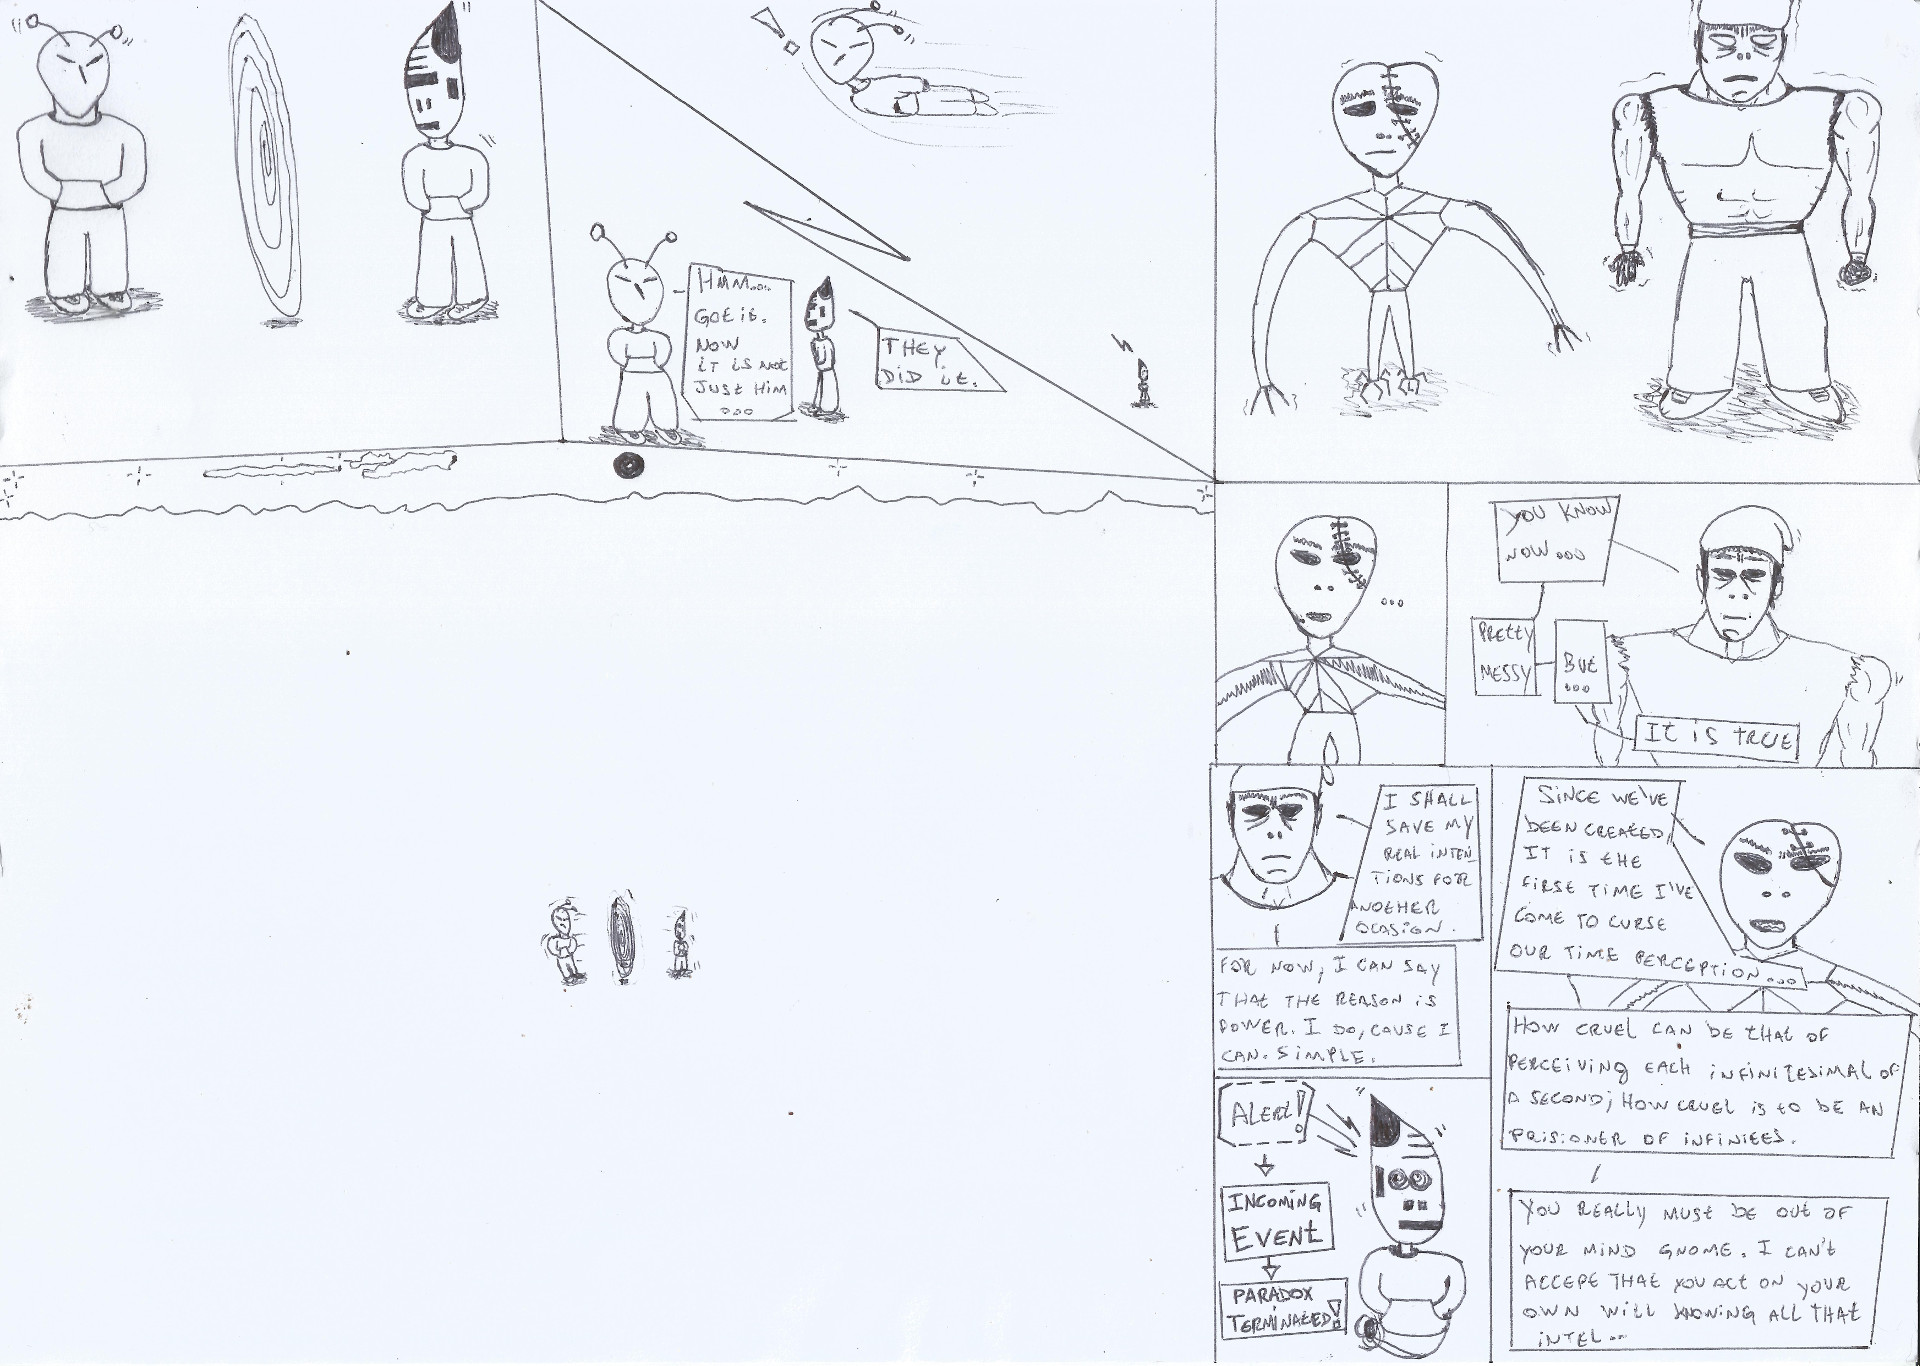 HMM...
GOt it.
NOW
iT iS NOt
JUST HiM
...
THEY
DiD it.
...
YOU KNOW
NOW...
PREttY
MESSY
BUt
...
It iS TRUE
I SHALL
SAVE MY
REAL iNTEN
TIONS FOR
ANOtHER
OCASiON.
FOR NOW, I CAN SAY
THAt THE REASON iS
POWER. I DO, CAUSE I
CAN. SiMPLE.
SiNCE WE'VE
BEEN CREAtED,
IT iS tHE
FiRST TiME I'VE
COME TO CURSE
OUR TiME PERCEPTiON...
HOW CRUEL CAN BE tHAt OF
PERCEiViNG EACH iNFiNitESiMAL OF
A SECOND; HOW CRUEL iS tO BE AN
PRiSiONER OF iNFiNitES.
YOU REALLY MUSt BE OUt OF
YOUR MiND GNOME. I CAN't
ACCEPt THAt YOU ACt ON YOUR
OWN WiLL KNOWiNG ALL THAt
iNtEL...
ALERt!
INCOMiNG
EVENt
PARADOX
TERMiNAtED!